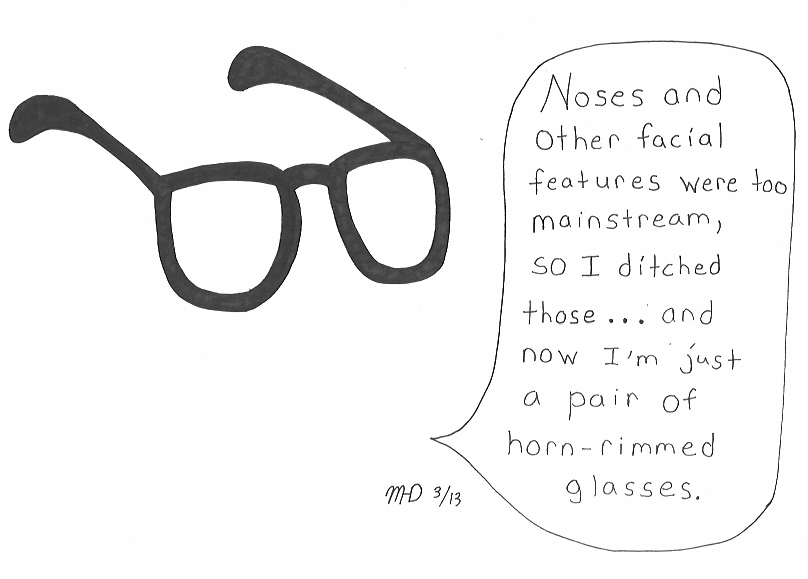 Noses and
other facial
features were too
mainstream,
so I ditched
those... and
now I'm just
a pair of
horn-rimmed
glasses.
M-D 3/13